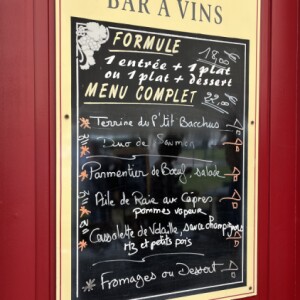 BAR À VINS
FORMULE 18,00€
1 entrée + 1 plat
ou 1 plat + dessert
MENU COMPLET 22,00€
Terrine du P'tit Bacchus
Duo de Saumon
Parmentier de Boeuf, salade
Aile de Raie aux Câpres
pommes vapeur
Cassolette de Volaille, sauce champignons
riz et petits pois
Fromages ou Dessert